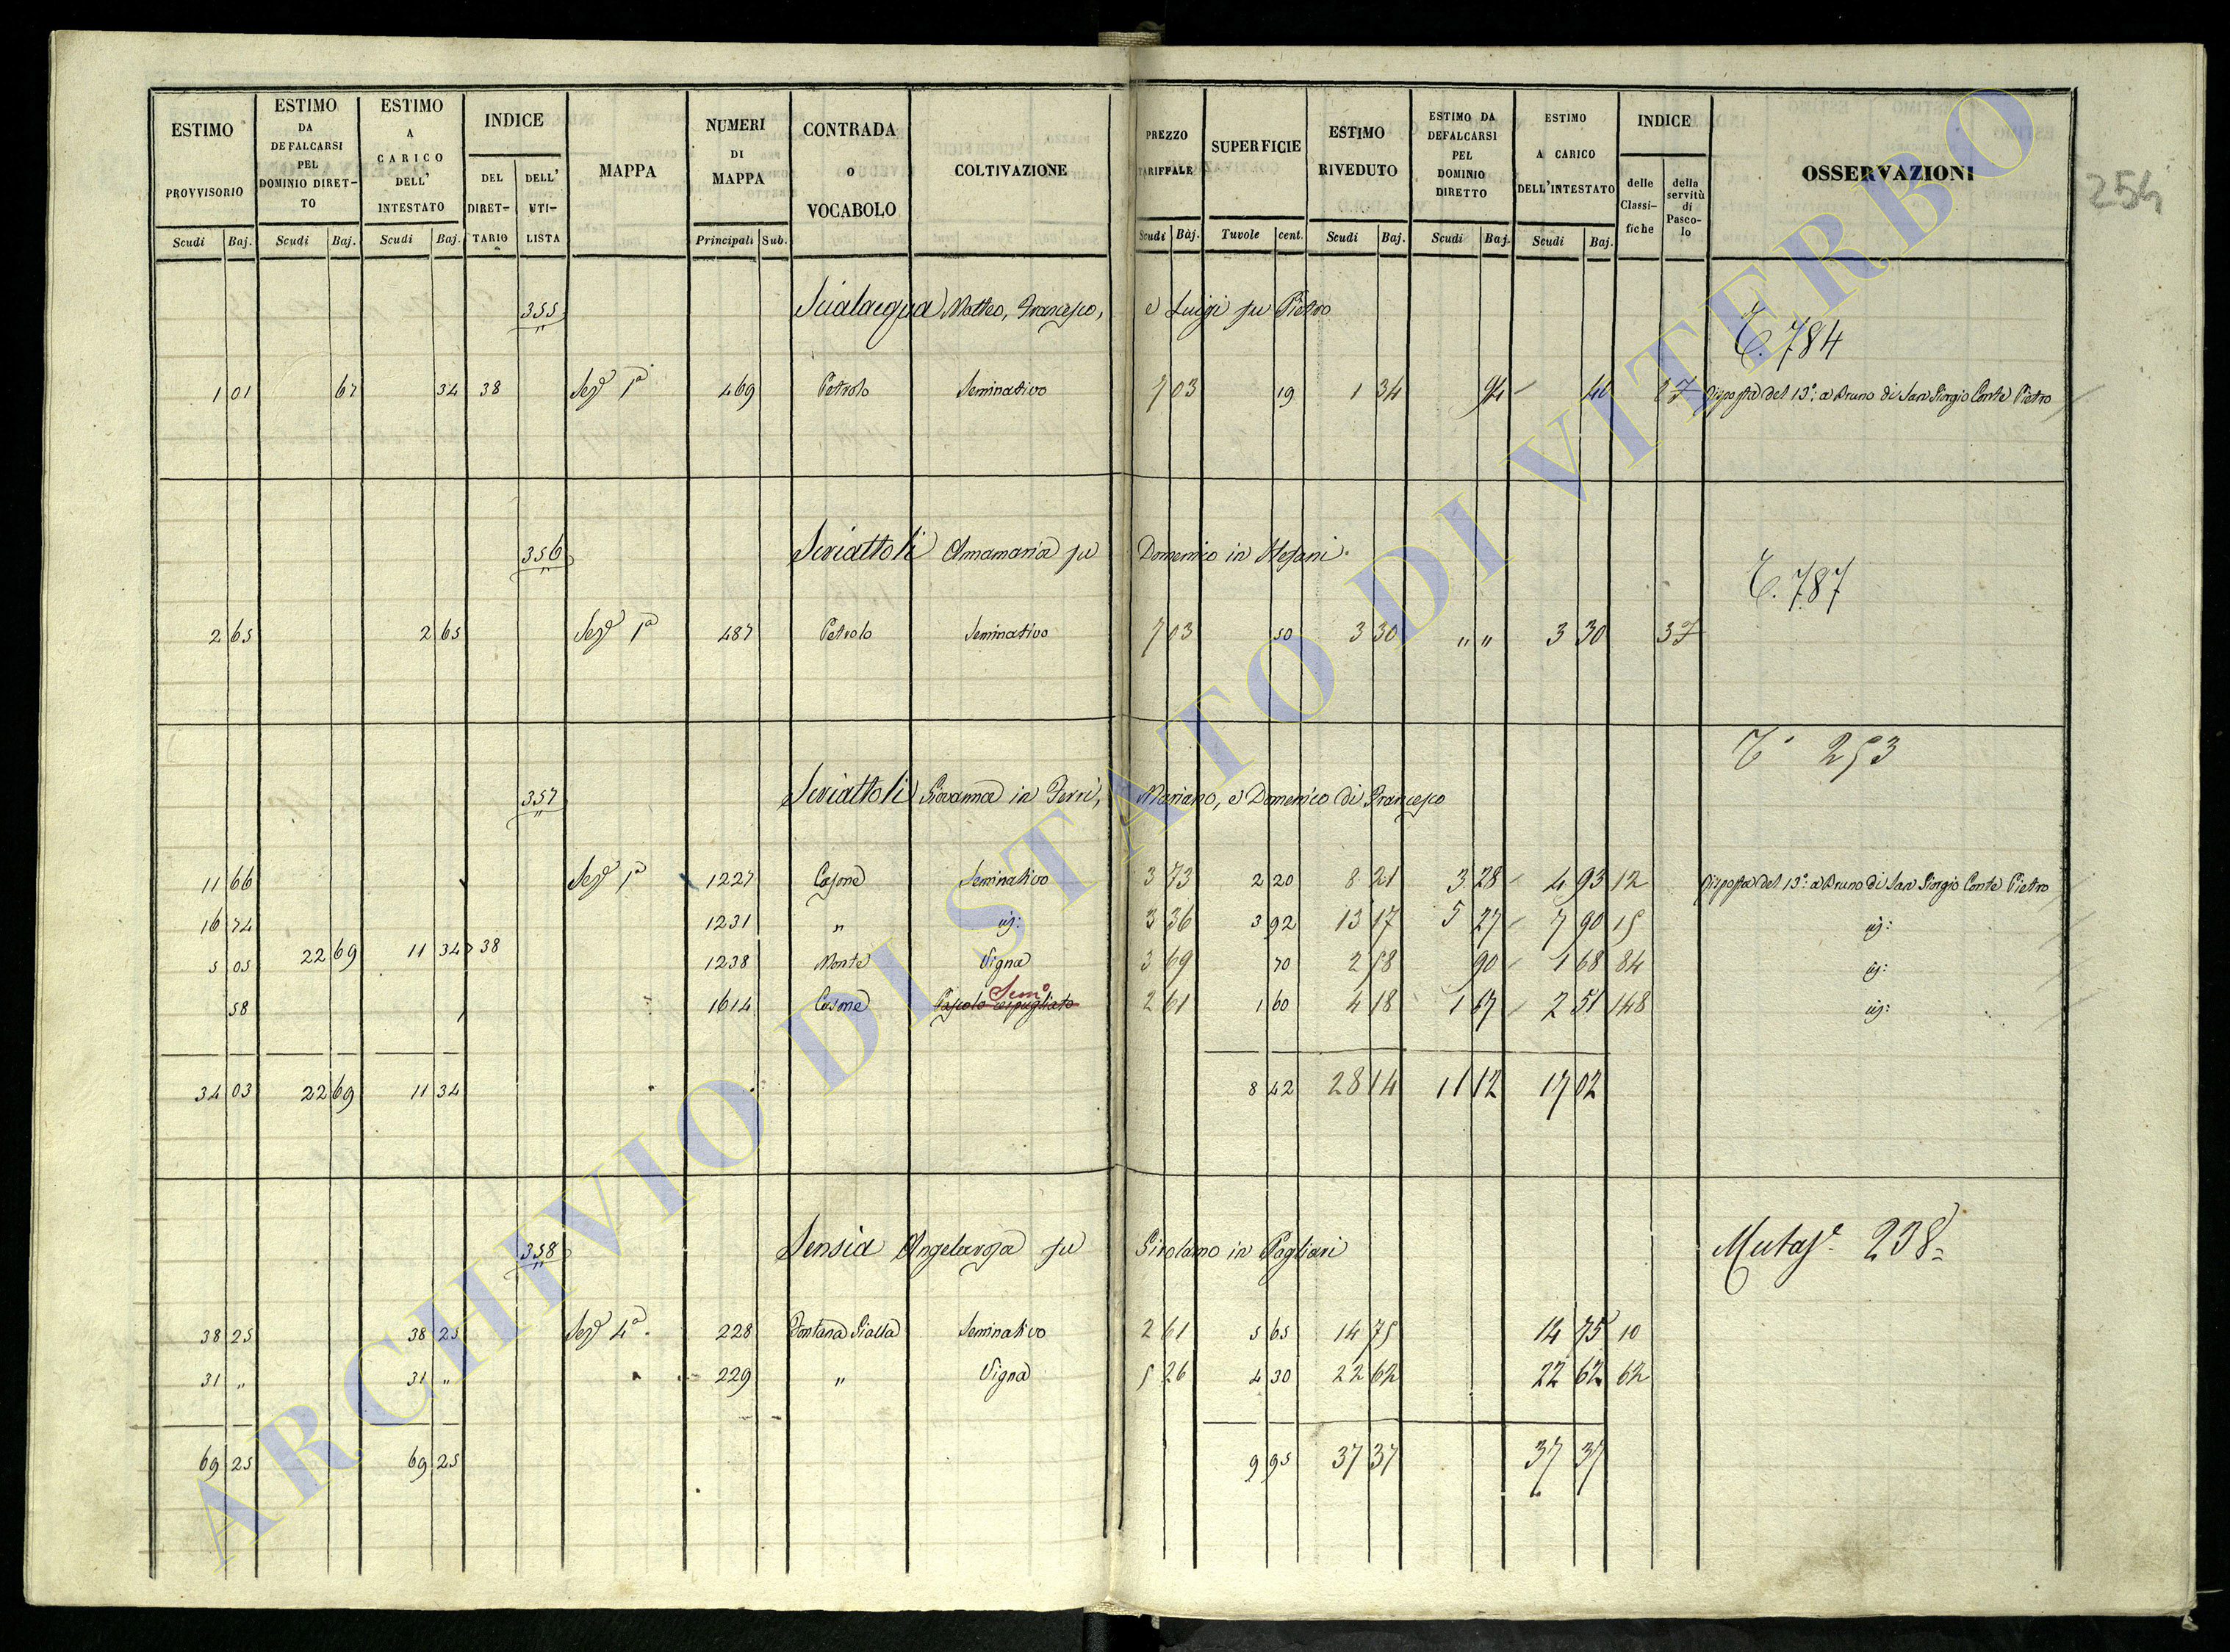 ESTIMO PROVVISORIO Scudi Baj.
ESTIMO DA DEFALCARSI PEL DOMINIO DIRET-TO Scudi Baj.
ESTIMO A CARICO DELL' INTESTATO Scudi Baj.
INDICE DEL DIRET-TARIO DELL' UTI-LISTA
MAPPA
NUMERI DI MAPPA Principali Sub.
CONTRADA O VOCABOLO
COLTIVAZIONE
PREZZO TARIFFALE Scudi Baj.
SUPERFICIE Tavole cent.
ESTIMO RIVEDUTO Scudi Baj.
ESTIMO DA DEFALCARSI PEL DOMINIO DIRETTO Scudi Baj.
ESTIMO A CARICO DELL'INTESTATO Scudi Baj.
INDICE delle Classi-fiche della servitù di Pasco-lo
OSSERVAZIONI
254
355 Scialacqua Matteo, Francesco, e Luigi fu Pietro
T. 784
1 01 67 34 38 Sez.e 1a 469 Petrolo Seminativo 7 03 19 1 34 94 40 27 Risposta del 13.: a Bruno di San Giorgio Conte Pietro
356 Scriattoli Annamaria fu Domenico in Stefani.
T. 787
2 65 2 65 Sez.e 1a 487 Petrolo Seminativo 7 03 50 3 30 " " 3 30 37
T. 253
357 Scriattoli Giovanna in Ferri, Mariano, e Domenico di Francesco
11 66 Sez.e 1a 1227 Casone Seminativo 3 73 2 20 8 21 3 28 4 93 12 Risposta del 13.: a Bruno di San Giorgio Conte Pietro
16 74 1231 " id: 3 36 3 92 13 17 5 27 7 90 15 id:
22 69 11 34 38
5 05 1238 Monte Vigna 3 69 70 2 58 90 1 68 84 id:
58 1614 Casone Pascolo cespugliato Sem.o 2 61 1 60 4 18 1 67 2 51 148 id:
34 03 22 69 11 34 8 42 28 14 11 12 17 02
358 Sensia Angelarosa fu Girolamo in Pagliari
Mutaz.e 238
38 25 38 25 Sez.e 4a. 228 Fontana Gialla Seminativo 2 61 5 65 14 75 14 75 10
31 " 31 " 229 " Vigna 5 26 4 30 22 62 22 62 62
69 25 69 25 9 95 37 37 37 37
ARCHIVIO DI STATO DI VITERBO